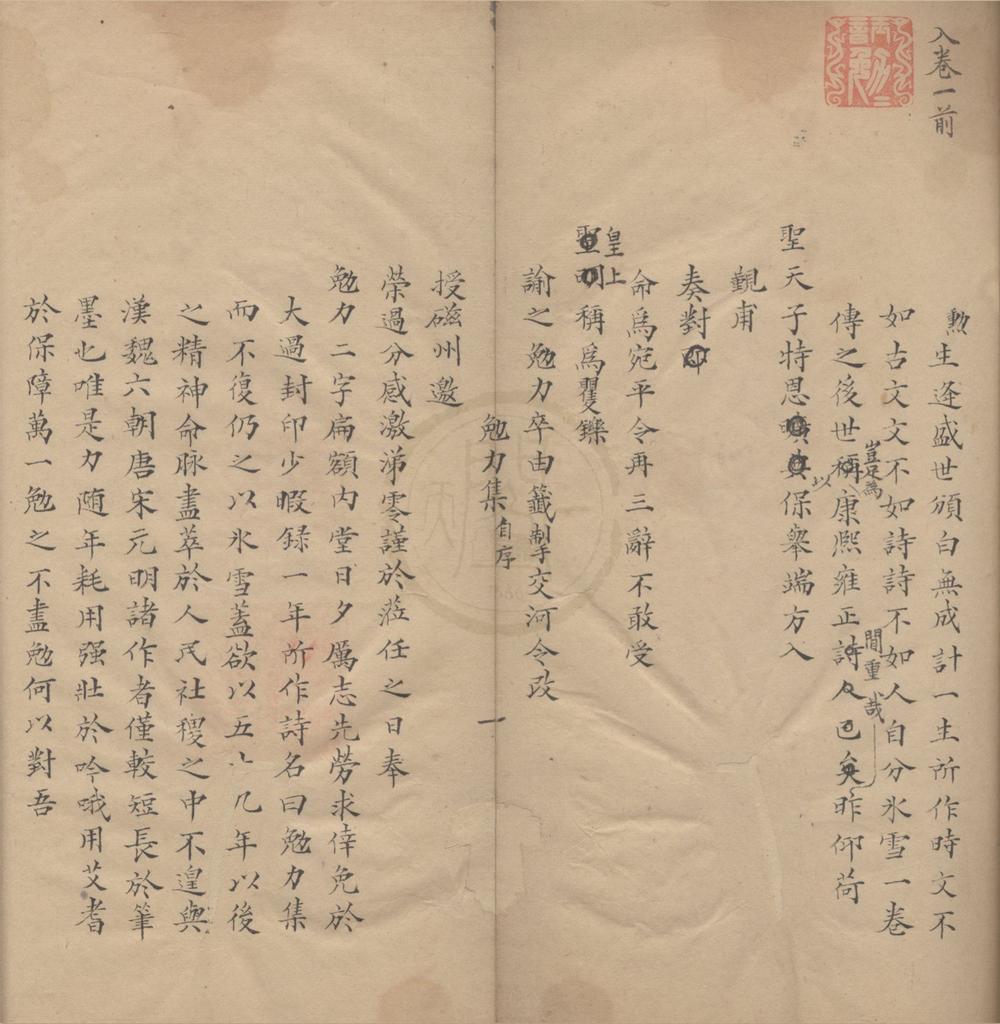 入卷一前
勲生逢盛世頒白無成計一生所作時文不
如古文文不如詩詩不如人自分氷雪一卷
傳之後世稱康熙雍正詩人已矣昨仰荷
豈足為
間重哉
聖天子特恩
以保舉端方入
覲甫
奏對
命爲宛平令再三辭不敢受
皇上
聖明稱爲矍鑠
諭之勉力卒由籤掣交河令改
勉力集 自序
一
授磁州邀
榮過分感激涕零謹於蒞任之日奉
勉力二字扁額内堂日夕厲志先勞求倖免於
大過封印少暇録一年所作詩名曰勉力集
而不復仍之以氷雪蓋欲以五十九年以後
之精神命脉盡萃於人民社稷之中不遑與
漢魏六朝唐宋元明諸作者僅較短長於筆
墨也唯是力随年耗用强壯於吟哦用艾耆
於保障萬一勉之不盡勉何以對吾